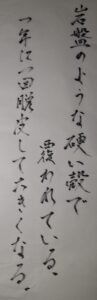 岩盤のような硬い殻で
覆われている。
一年に一回脱皮して大きくなる。